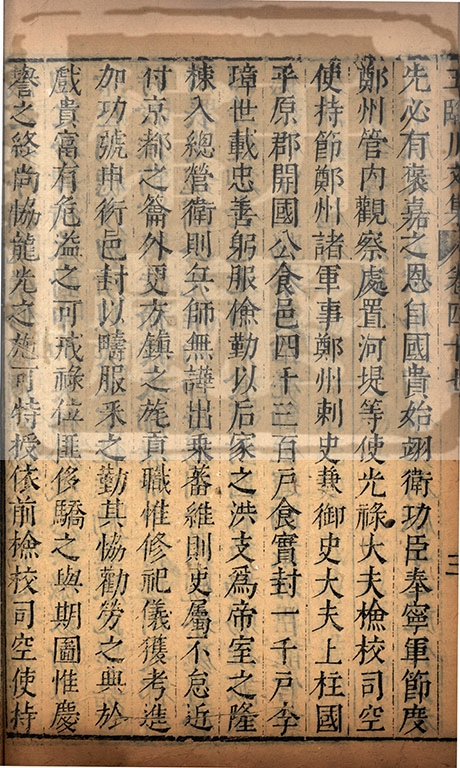 王臨川文集 卷四十七 三
先必有褒嘉之恩自國貴始翊衛功臣奉寧軍節度
鄭州管内觀察處置河堤等使光祿大夫檢校司空
使持節鄭州諸軍事鄭州刺史兼御史大夫上柱國
平原郡開國公食邑四千三百戸食實封一千戸李
璋世載忠善躬服儉勤以后家之洪支爲帝室之隆
棟入總營衛則兵師無譁出乘蕃維則吏屬不怠近
付京都之籥外更方鎮之旄貢職惟修祀儀獲考進
加功號申衍邑封以疇服釆之勤其協勸勞之典於
戲貴富有危溢之可戒祿位匪侈驕之與期圖惟慶
譽之終尚協龍光之施可特授依前檢校司空使持